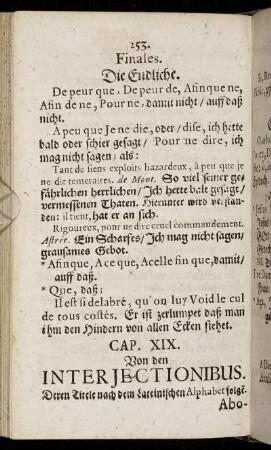 253.
Finales.
Die Endliche.
De peur que, De peur de, Afin que ne,
Afin de ne, Pour ne, damit nicht / auff daß
nicht.
A peu que Je ne die, oder / dise, ich hette
bald oder schier gesagt / Pour ne dire, ich
mag nicht sagen; als:
Tant de siens exploits hazardeux, à peu que je
ne die temeraires. de Mont. So viel seiner ge-
fährlichen herrlichen / Ich hette balt gesagt /
vermessenen Thaten. Hierunter wird verstan-
den: il tient, hat er an sich.
Rigoureux, pour ne dire cruel commandement.
Astrée. Ein Scharfes / Ich mag nicht sagen /
grausames Gebot.
* Afinque, A ce que, A celle fin que, damit /
auff daß.
* Que, daß;
Il est si delabré, qu'on luy Void le cul
de tous costés. Er ist zerlumpet daß man
ihm den Hindern von allen Ecken siehet.
CAP. XIX.
Von den
INTERJECTIONIBUS.
Deren Titele nach dem Lateinischen Alphabet folgē.
Abo-